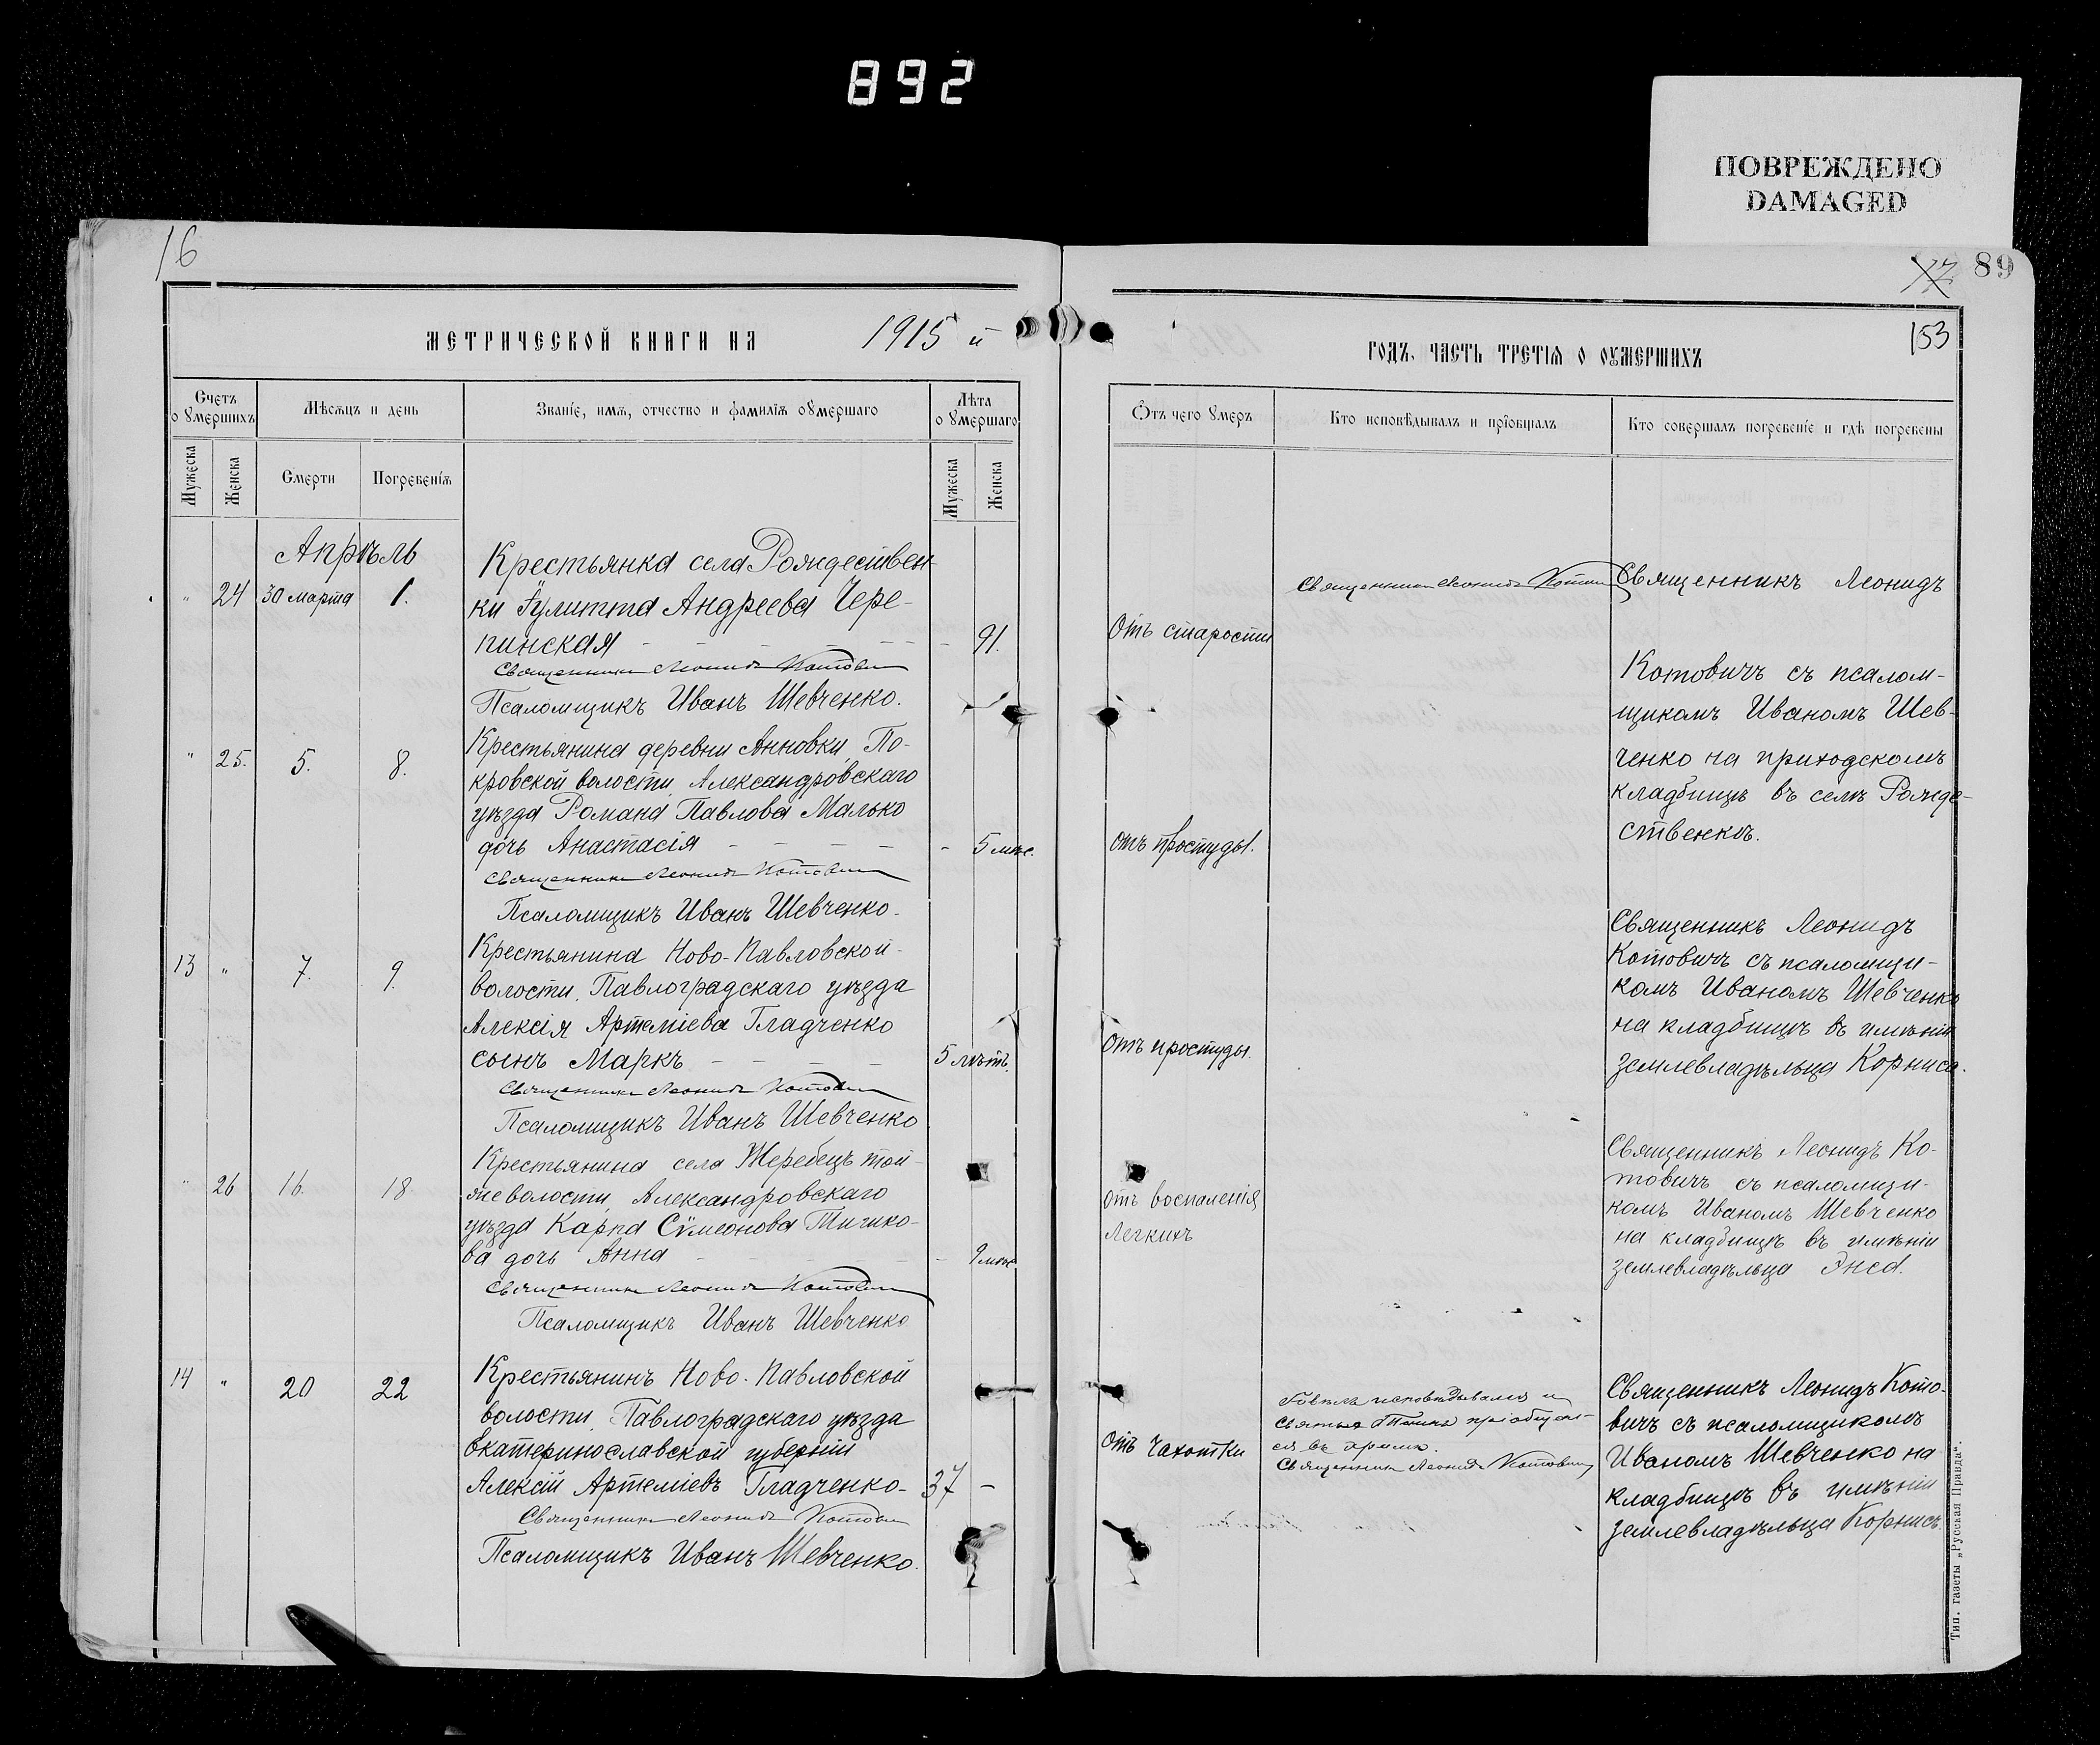 892
ПОВРЕЖДЕНО
DAMAGED
16
МЕТРИЧЕСКОЙ КНИГИ НА 1915 й
Счетъ о умершихъ
Мѣсяцъ и день
Званіе, имя, отчество и фамилія умершаго
Лѣта о умершаго
Мужеска
Женска
Смерти
Погребенія
Мужеска
Женска
Апрѣль
" 24 30 марта 1.
Крестьянка села Рождествен-
ки Іулитта Андреева Чере-
пинская - - - - - - 91.
Священникъ Леонидъ Котович
Псаломщикъ Иванъ Шевченко.
" 25. 5. 8.
Крестьянина деревни Анновки, По-
кровской волости, Александровскаго
уѣзда Романа Павлова Малько
дочь Анастасія - - - - - 5 мѣс.
Священникъ Леонидъ Котович
Псаломщикъ Иванъ Шевченко.
13 " 7. 9.
Крестьянина Ново-Павловской
волости, Павлоградскаго уѣзда
Алексія Артеміева Гладченко
сынъ Маркъ - - - - 5 лѣтъ.
Священникъ Леонидъ Котович
Псаломщикъ Иванъ Шевченко
" 26 16. 18.
Крестьянина села Жеребецъ той-
же волости, Александровскаго
уѣзда Карпа Сѵмеонова
ва дочь Анна - - - - - 9 мѣс
Священникъ Леонидъ Котович
Псаломщикъ Иванъ Шевченко
14 " 20 22
Крестьянинъ Ново-Павловской
волости, Павлоградскаго уѣзда
Екатеринославской губерніи
Алексій Артеміевъ Гладченко- 37 -
Священникъ Леонидъ Котович
Псаломщикъ Иванъ Шевченко.
17 89
153
ГОДЪ, ЧАСТЬ ТРЕТІЯ О ОУМЕРШИХЪ
Отъ чего умеръ
Кто исповѣдывалъ и пріобщалъ
Кто совершалъ погребеніе и гдѣ погребены
Отъ старости
Священникъ Леонидъ Котович
Священникъ Леонидъ
Котовичъ съ псалом-
щикомъ Иваномъ Шев-
ченко на приходскомъ
кладбищѣ въ селѣ Рожде-
ственкѣ.
отъ простуды.
Отъ простуды.
Священникъ Леонидъ
Котовичъ съ псаломщи-
комъ Иваномъ Шевченко
на кладбищѣ въ имѣніи
землевладѣльца Корниса.
отъ воспаленія
легкихъ
Священникъ Леонидъ Ко-
товичъ съ псаломщи-
комъ Иваномъ Шевченко
на кладбищѣ въ имѣніи
землевладѣльца Энса.
Отъ чахотки
Говѣлъ исповѣдывался и
Святыхъ Таинъ пріобщал-
ся въ
Священникъ Леонидъ Котович
Священникъ Леонидъ Кото-
вичъ съ псаломщикомъ
Иваномъ Шевченко на
кладбищѣ въ имѣніи
землевладѣльца Корнисъ
Тип. газеты „Русская Правда“.